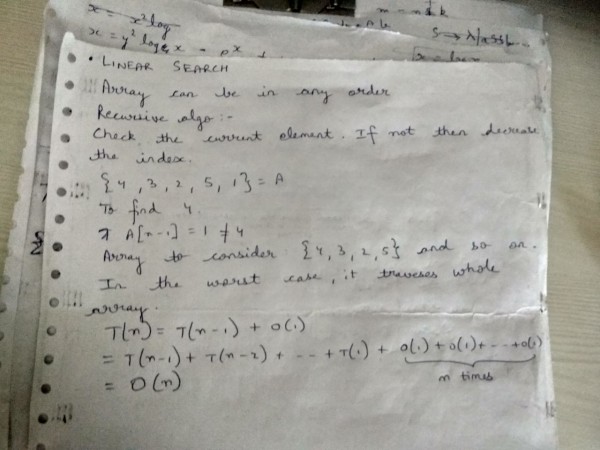 x = x² log
x = y² log x
• LINEAR SEARCH
Array can be in any order
Recursive algo :-
Check the current element. If not then decrease
the index.
{4, 3, 2, 5, 1} = A
To find 4.
A[n-1] = 1 ≠ 4
Array to consider {4, 3, 2, 5} and so on.
In the worst case, it traveses whole
array.
T(n) = T(n-1) + O(1)
= T(n-1) + T(n-2) + -- + T(1) + O(1) + O(1) + -- + O(1)
n times
= O(n)